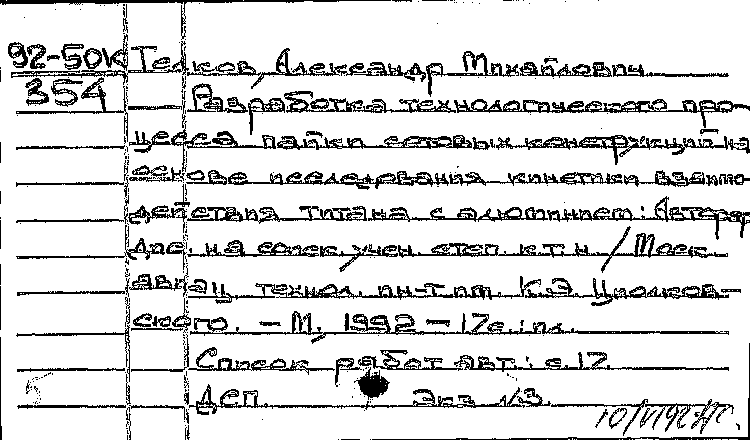 92-50к Телков, Александр Михайлович
354 Разработка технологического про-
цесса пайки сотовых конструкций на
основе исследования кинетики взаимо-
действия титана с алюминием: Автореф
дис. на соиск. учен. степ. к.т.н. / Моск.
авиац. технол. ин-т им. К.Э. Циолков-
ского. - М., 1992 - 17с.: ил.
Список работ авт.: с.17
Деп. Экз. №3.